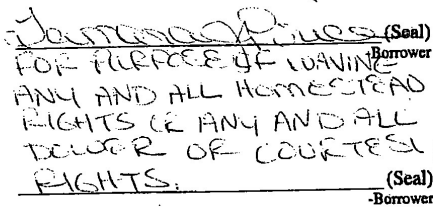 (Seal)
-Borrower
FOR PURPOSE OF WAVING
ANY AND ALL HOMESTEAD
RIGHTS OR ANY AND ALL
DOWER OR COURTESI
RIGHTS.
(Seal)
-Borrower